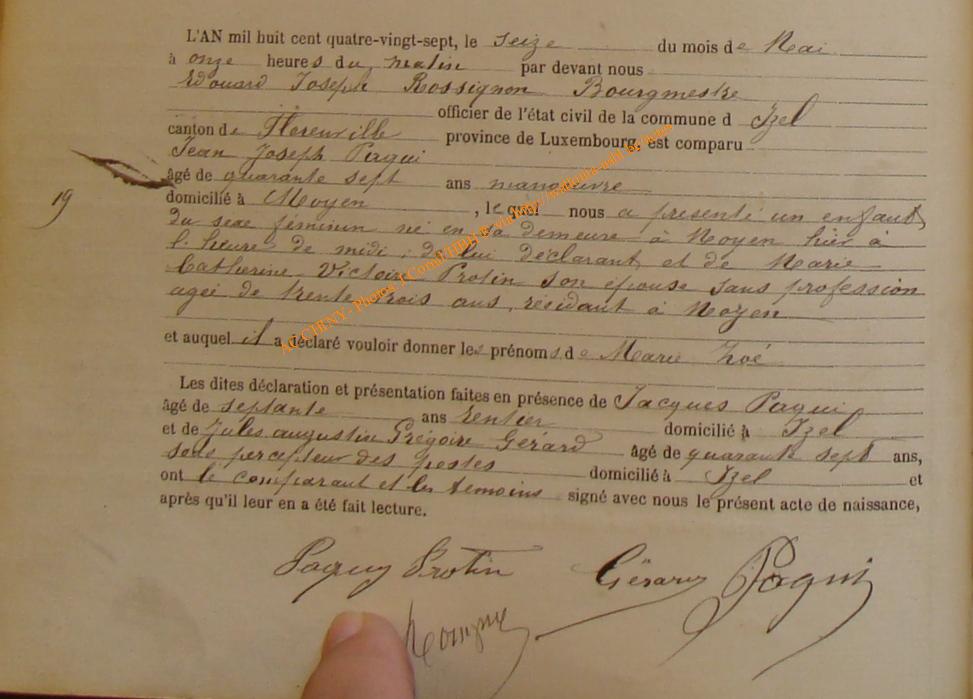 L'AN mil huit cent quatre-vingt-sept, le seize du mois de Mai
à onze heures du matin par devant nous
Edouard Joseph Rossignon Bourgmestre
officier de l'état civil de la commune d Izel
canton de Florenville province de Luxembourg, est comparu
Jean Joseph Paqui
âgé de quarante sept ans manoeuvre
19
domicilié à Moyen, lequel nous a présenté un enfant
du sexe féminin né en sa demeure à Moyen hier à
l'heure de midi, de lui déclarant et de Marie
Catherine Victoire Protin son épouse sans profession
agée de trente trois ans, résidant à Moyen
et auquel il a déclaré vouloir donner les prénoms de Marie Zoé
Les dites déclaration et présentation faites en présence de Jacques Paqui
âgé de septante ans rentier domicilié à Izel
et de Jules augustin Grégoire Gerard âgé de quarante sept ans,
sous percepteur des postes domicilié à Izel et
ont le comparant et les témoins signé avec nous le présent acte de naissance,
après qu'il leur en a été fait lecture.
Paquy Protin Gérard Paqui